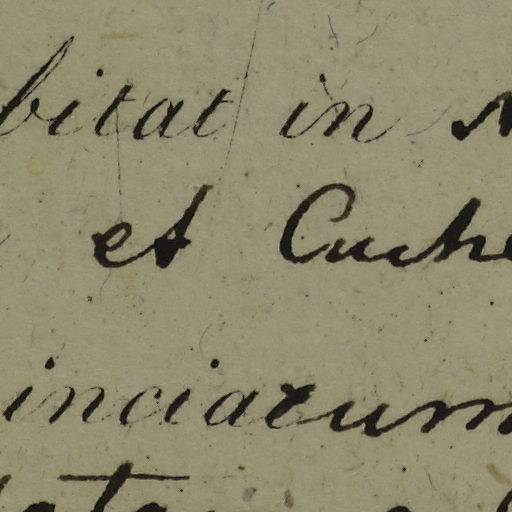 bitat in
et Cuche
inciarum